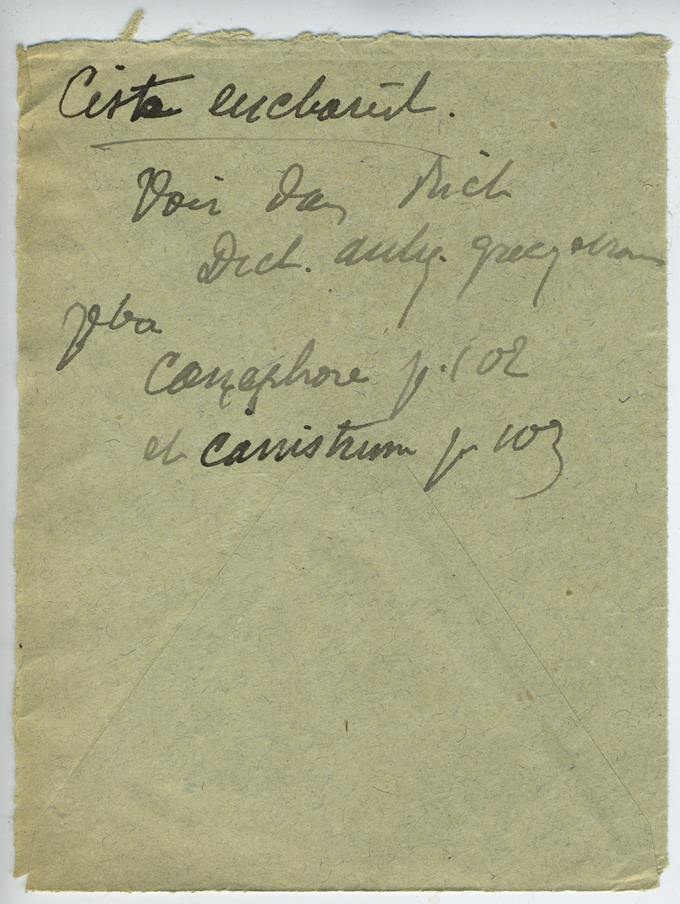 Cista eucharist.
Voir dans Rich
Dict. antiq. grecq et rom
Canephore p. 102
et canistrum p 103